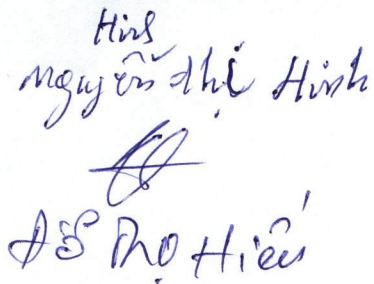 Hinh
Nguyễn Thị Hinh
Đỗ Thọ Hiếu